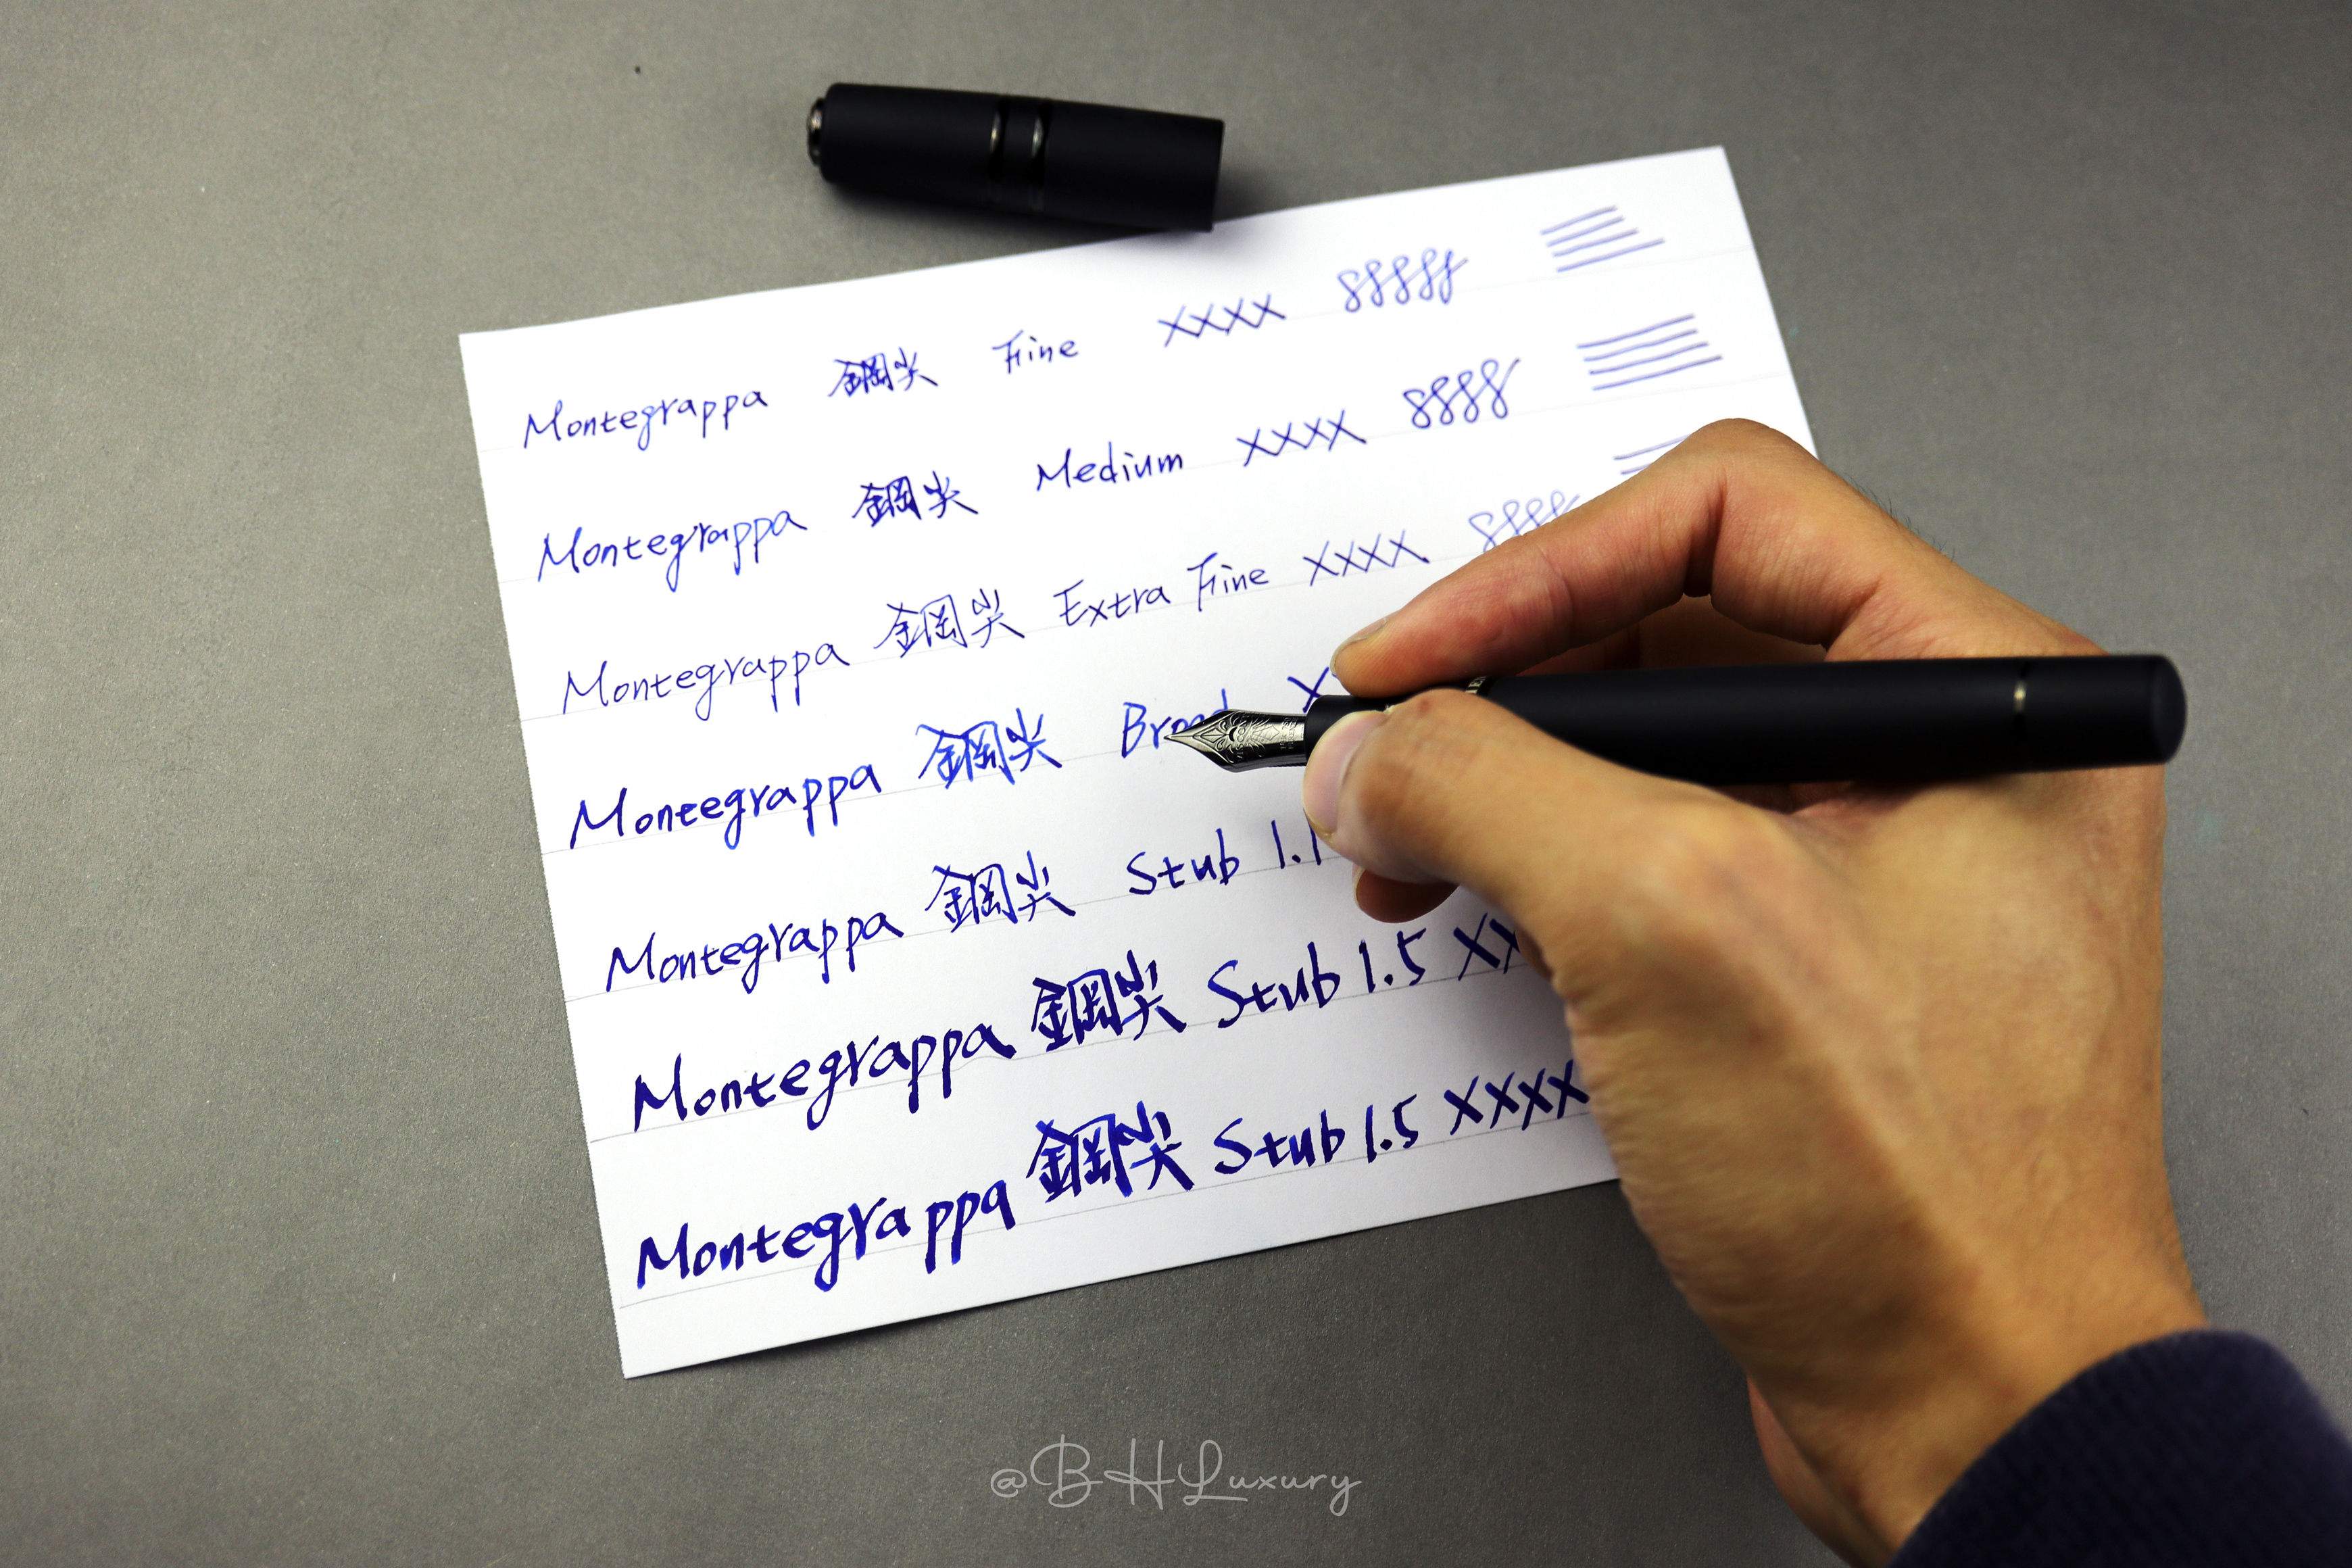 Montegrappa 鋼尖 Fine XXXX
Montegrappa 鋼尖 Medium XXXX
Montegrappa 鋼尖 Extra Fine XXXX
Montegrappa 鋼尖 Broad X
Montegrappa 鋼尖 Stub 1.1
Montegrappa 鋼尖 Stub 1.5 XX
Montegrappa 鋼尖 Stub 1.5 XXXX
@BHLuxury